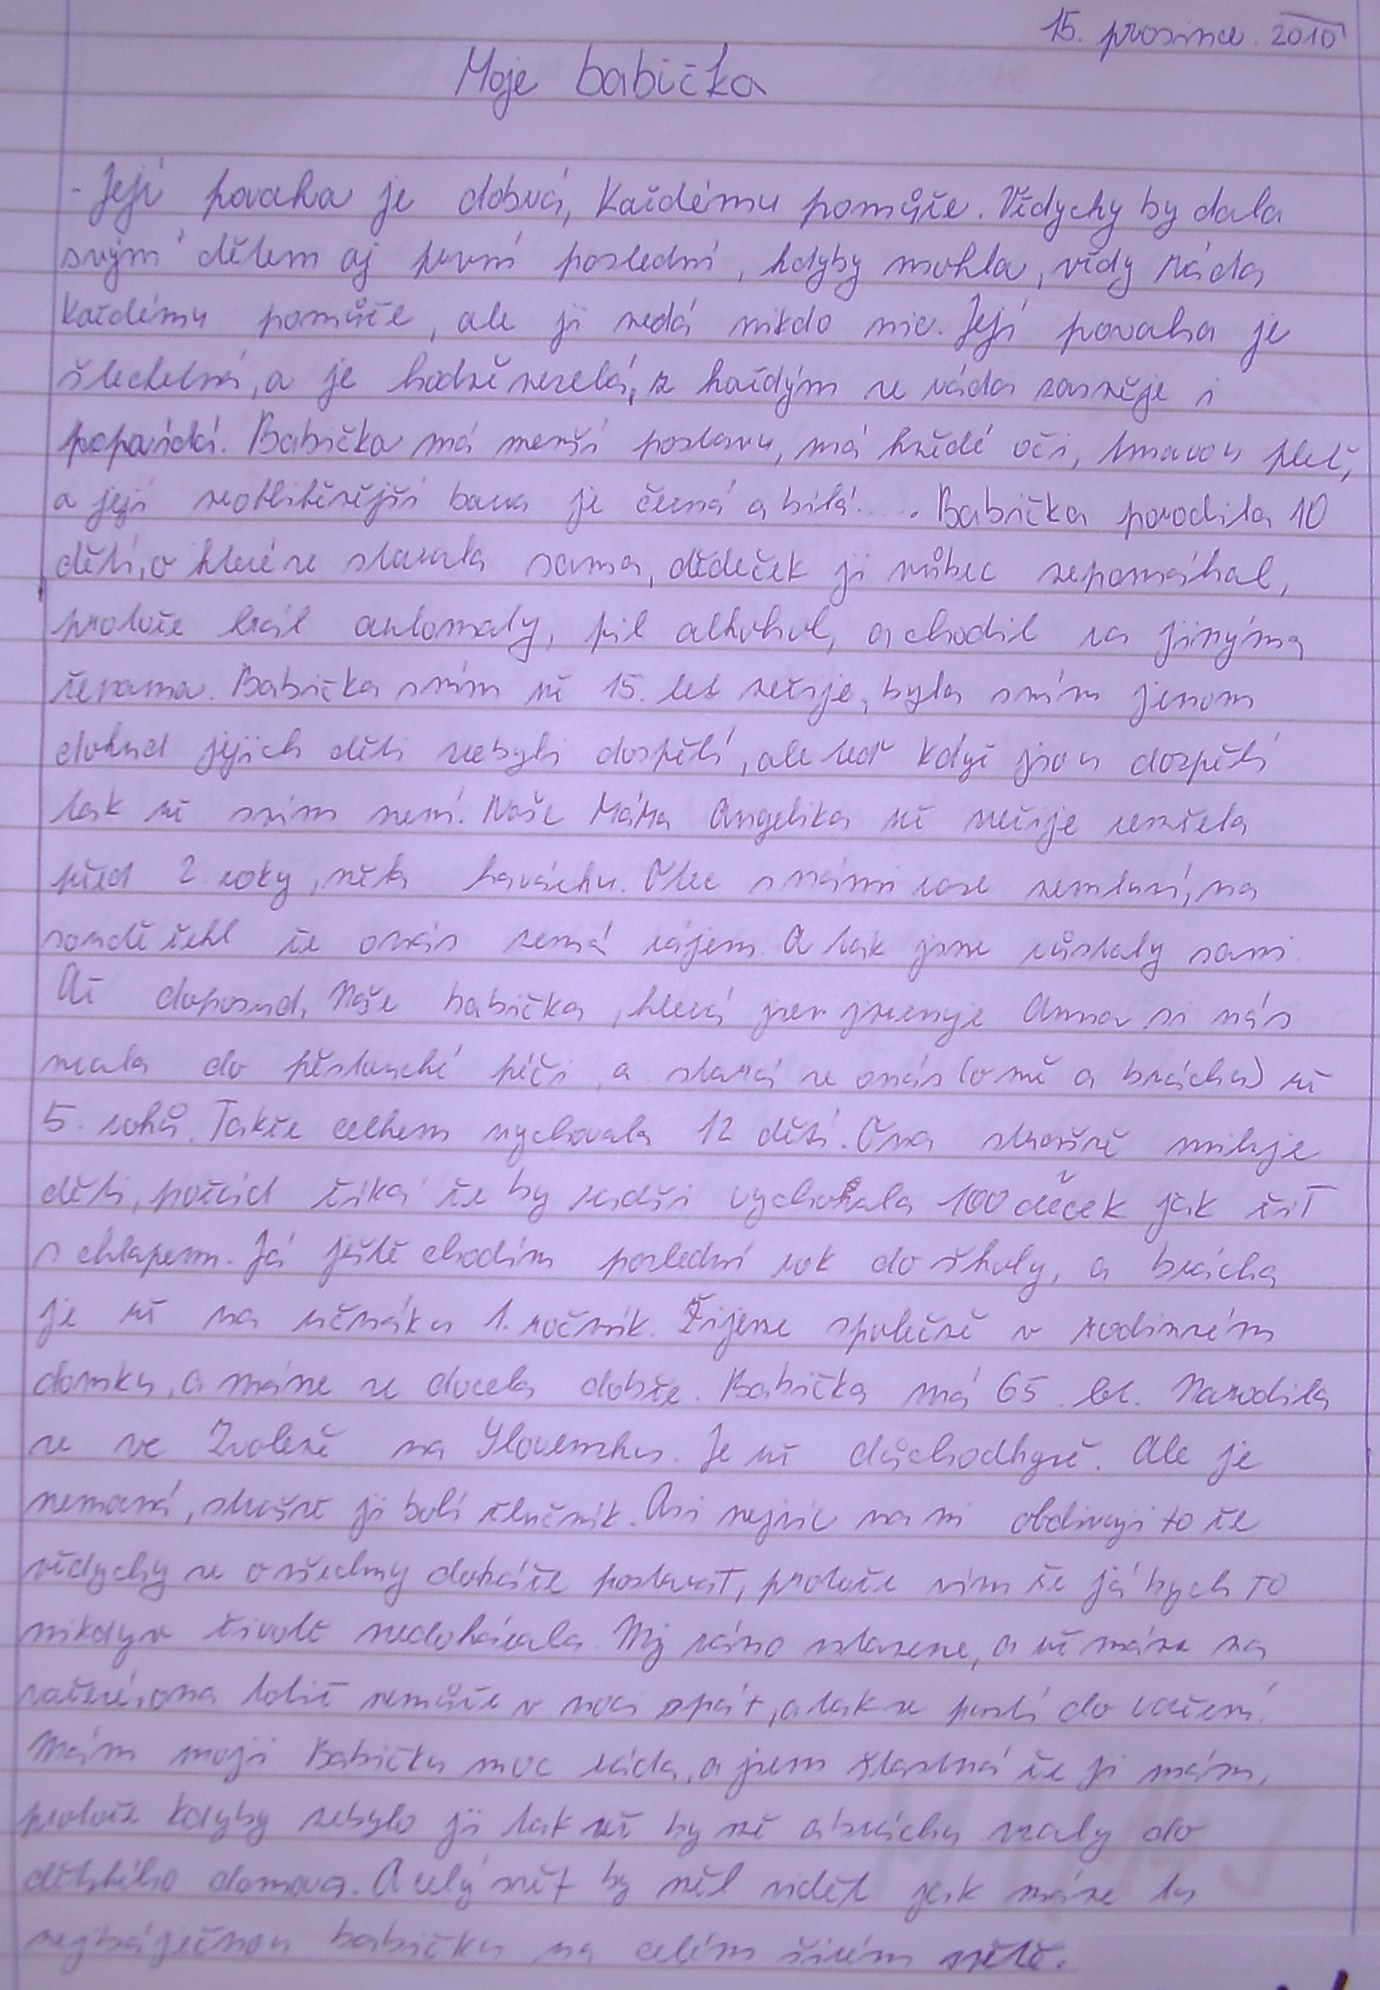 15. prosince. 2010
Moje babička
- Její povaha je dobrá, Každému pomůže. Vždycky by dala
svým dětem aj první poslední, kdyby mohla, vždy ráda
Každému pomůže, ale ji nedá nikdo nic. Její povaha je
šlechetná, a je hodně veselá, z každým se ráda zasměje i
popovídá. Babička má menší postavu, má hnědé oči, tmavou pleť,
a její nejoblíbenější barva je černá a bílá.... Babička porodila 10
dětí, o které se starala sama, dědeček ji vůbec nepomáhal,
protože hrál automaty, pil alkohol, a chodil za jinýma
ženama. Babička sním už 15. let nežije, byla sním jenom
dokud jejich děti nebyli dospělí, ale teď když jsou dospělí
tak už sním není. Naše Máma Angelika už nežije zemřela
před 2 roky, měla Otec snámi zase nemluví, na
soudě řekl že onás nemá zájem. A tak jsme zůstaly sami.
Až doposud, Naše babička, která jmenuje Anna si nás
vzala do pěstounské péči, a stará se onás (o mě a bráchu) už
5. roků. Takže celkem vychovala 12 dětí. Ona strašně miluje
děti, pořád říká že by radši vychovala 100 děcek jak žiT
s chlapem. Já ještě chodím poslední rok do školy, a brácha
je už na učnáku 1. ročník. Žijeme společně v rodinném
domku, a máme se docela dobře. Babička má 65 let. Narodila
se ve Zvoleně na Slovensku. Je už důchodkyně. Ale je
nemocná, strašně ji bolí žlučník. Asi nejvíc na ni obdivuji to že
vždycky se o všechny dokáže postaraT, protože vím že já bych TO
nikdy v životě nedokázala. My ráno vstaneme, a už máme na
vařené, ona totiž nemůže v noci spát, a tak se pustí do vaření.
Mám moji Babičku moc ráda, a jsem šťastná že ji mám,
protože kdyby nebylo ji tak už by mě abráchu vzaly do
dětského domova. A celý svět by měl vidět jak máme tu
nejbáječnou babičku na celém širém světě.